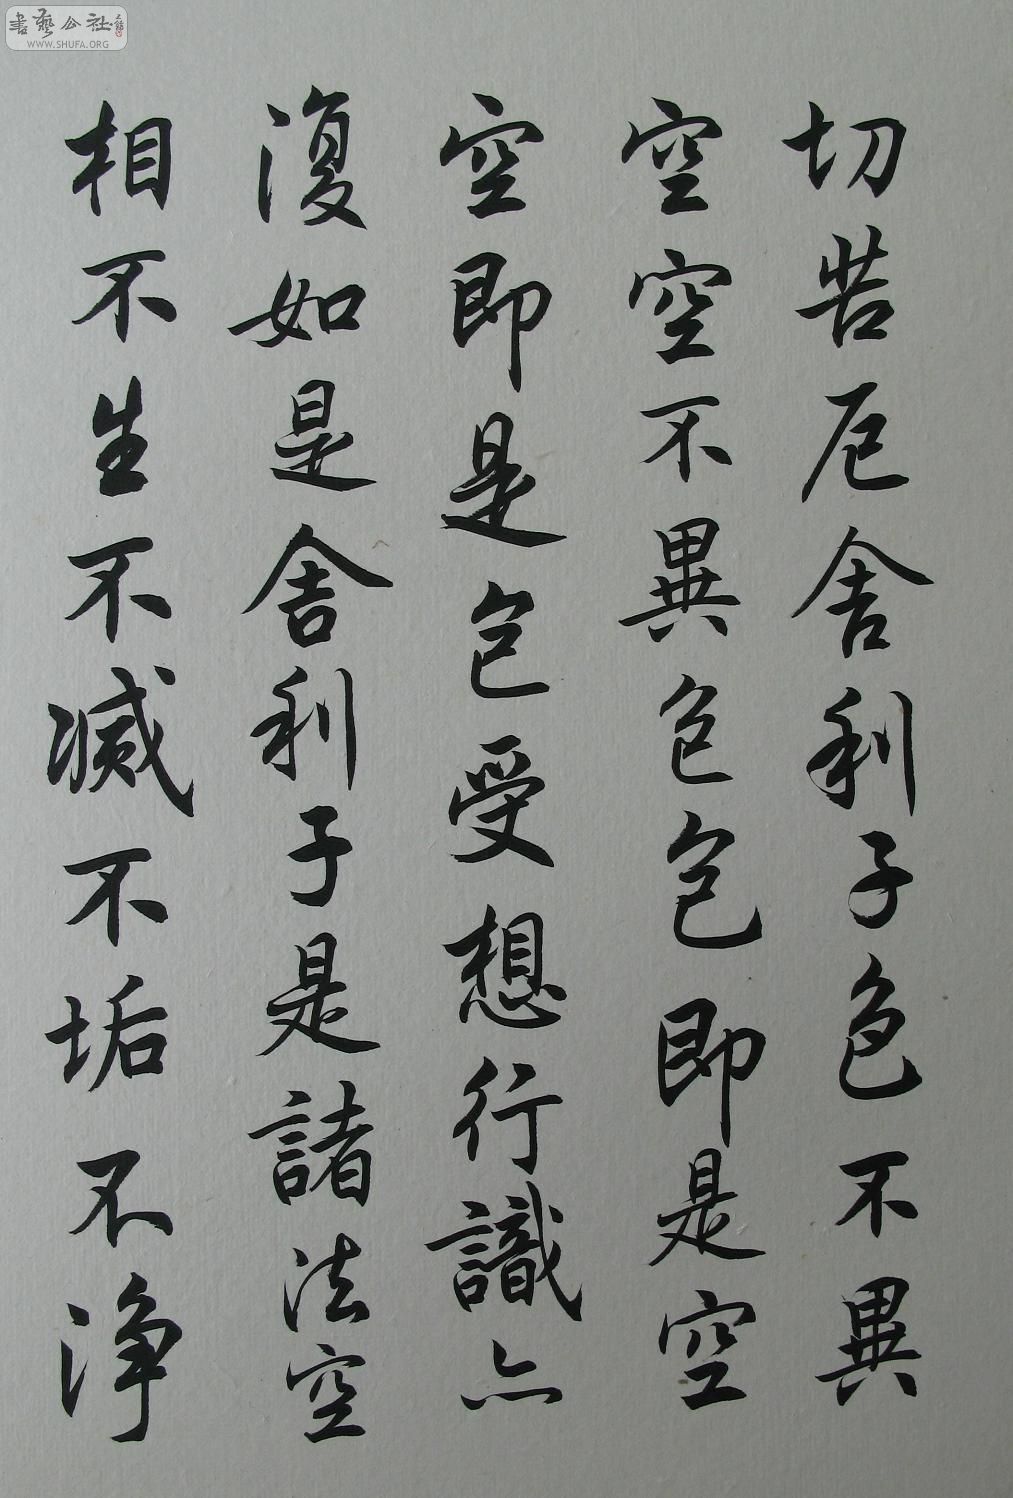 書藝公社
WWW.SHUFA.ORG
切苦厄舍利子色不異
空空不異色色即是空
空即是色受想行識亦
復如是舍利子是諸法空
相不生不滅不垢不淨